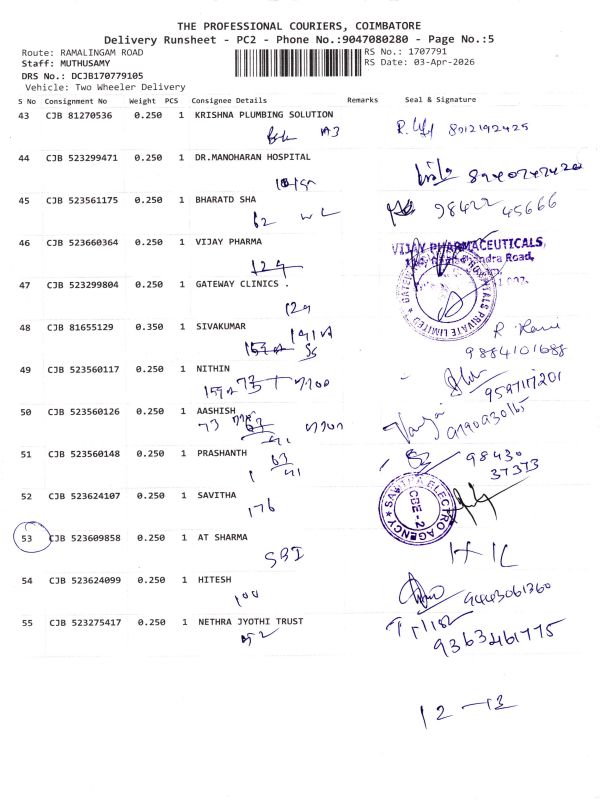 THE PROFESSIONAL COURIERS, COIMBATORE
Delivery Runsheet - PC2 - Phone No.:9047080280 - Page No.:5
Route: RAMALINGAM ROAD RS No.: 1707791
Staff: MUTHUSAMY RS Date: 03-Apr-2026
DRS No.: DCJB170779105
Vehicle: Two Wheeler Delivery
S No Consignment No Weight PCS Consignee Details Remarks Seal & Signature
43 CJB 81270536 0.250 1 KRISHNA PLUMBING SOLUTION
A3 8012192425
44 CJB 523299471 0.250 1 DR.MANOHARAN HOSPITAL
45 CJB 523561175 0.250 1 BHARATD SHA
62 WL 98422 45666
46 CJB 523660364 0.250 1 VIJAY PHARMA
129
VIJAY PHARMACEUTICALS,
47 CJB 523299804 0.250 1 GATEWAY CLINICS .
129
48 CJB 81655129 0.350 1 SIVAKUMAR
R. Rani
9884101688
49 CJB 523560117 0.250 1 NITHIN
73
9597117201
50 CJB 523560126 0.250 1 AASHISH
73
51 CJB 523560148 0.250 1 PRASHANTH
98430
37373
52 CJB 523624107 0.250 1 SAVITHA
176
SAVITHA ELECTRO AGENCY
CBE-2
53 CJB 523609858 0.250 1 AT SHARMA
SBI
54 CJB 523624099 0.250 1 HITESH
100 9443061360
55 CJB 523275417 0.250 1 NETHRA JYOTHI TRUST
9363461775
12-13